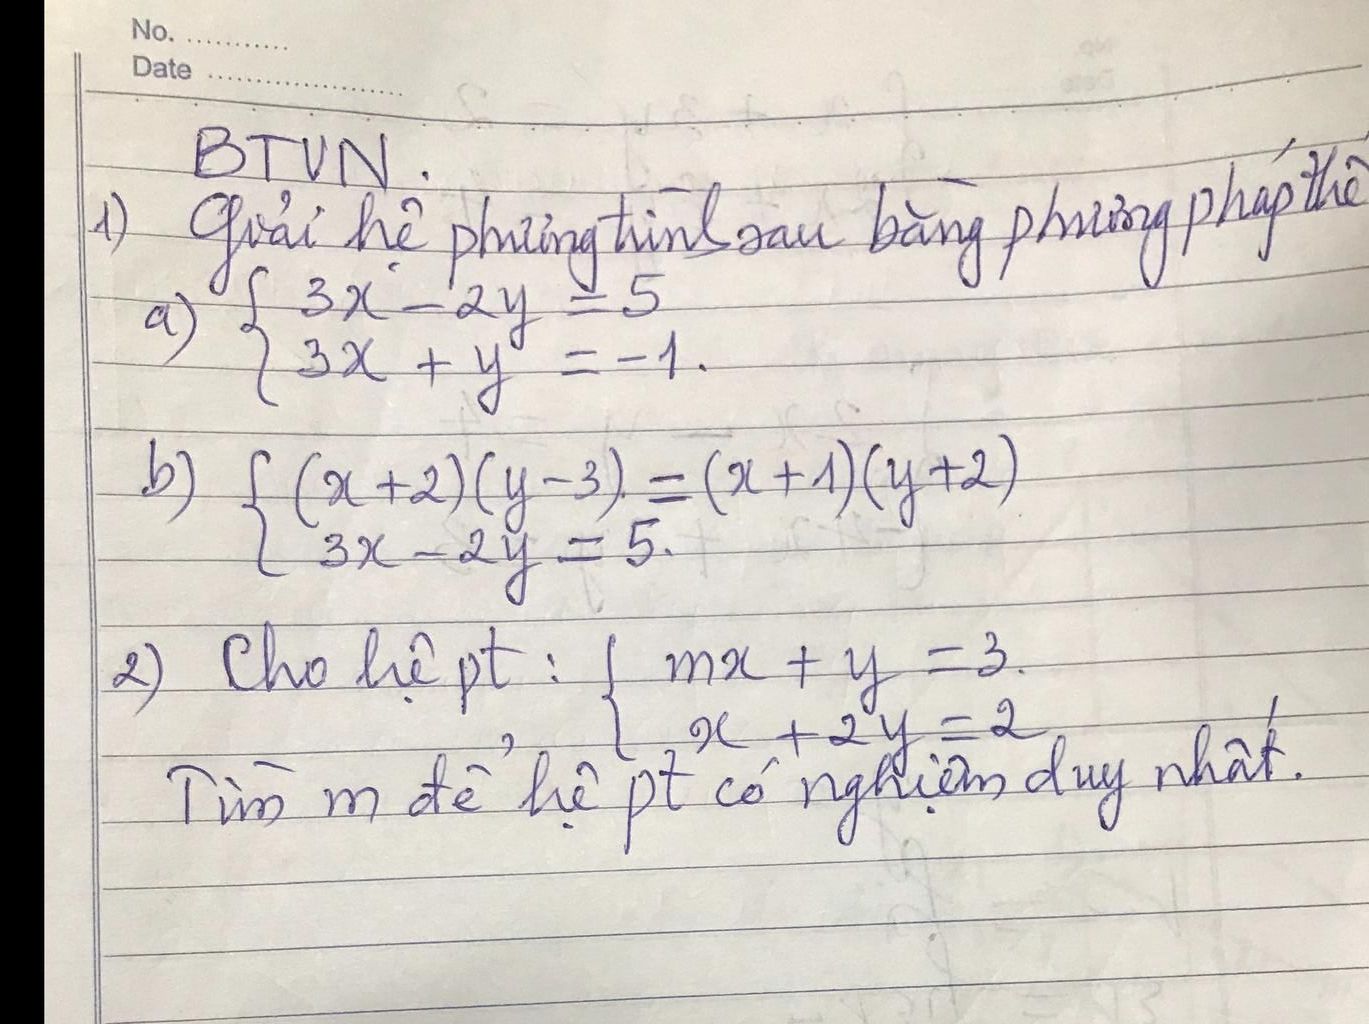 No. ...........
Date .....................
BTVN.
1) Giải hệ phương trình sau bằng phương pháp thế
a) { 3x - 2y = 5
3x + y = -1.
b) { (x+2)(y-3) = (x+1)(y+2)
3x - 2y = 5.
2) Cho hệ pt : { mx + y = 3.
x + 2y = 2
Tìm m để hệ pt có nghiệm duy nhất.